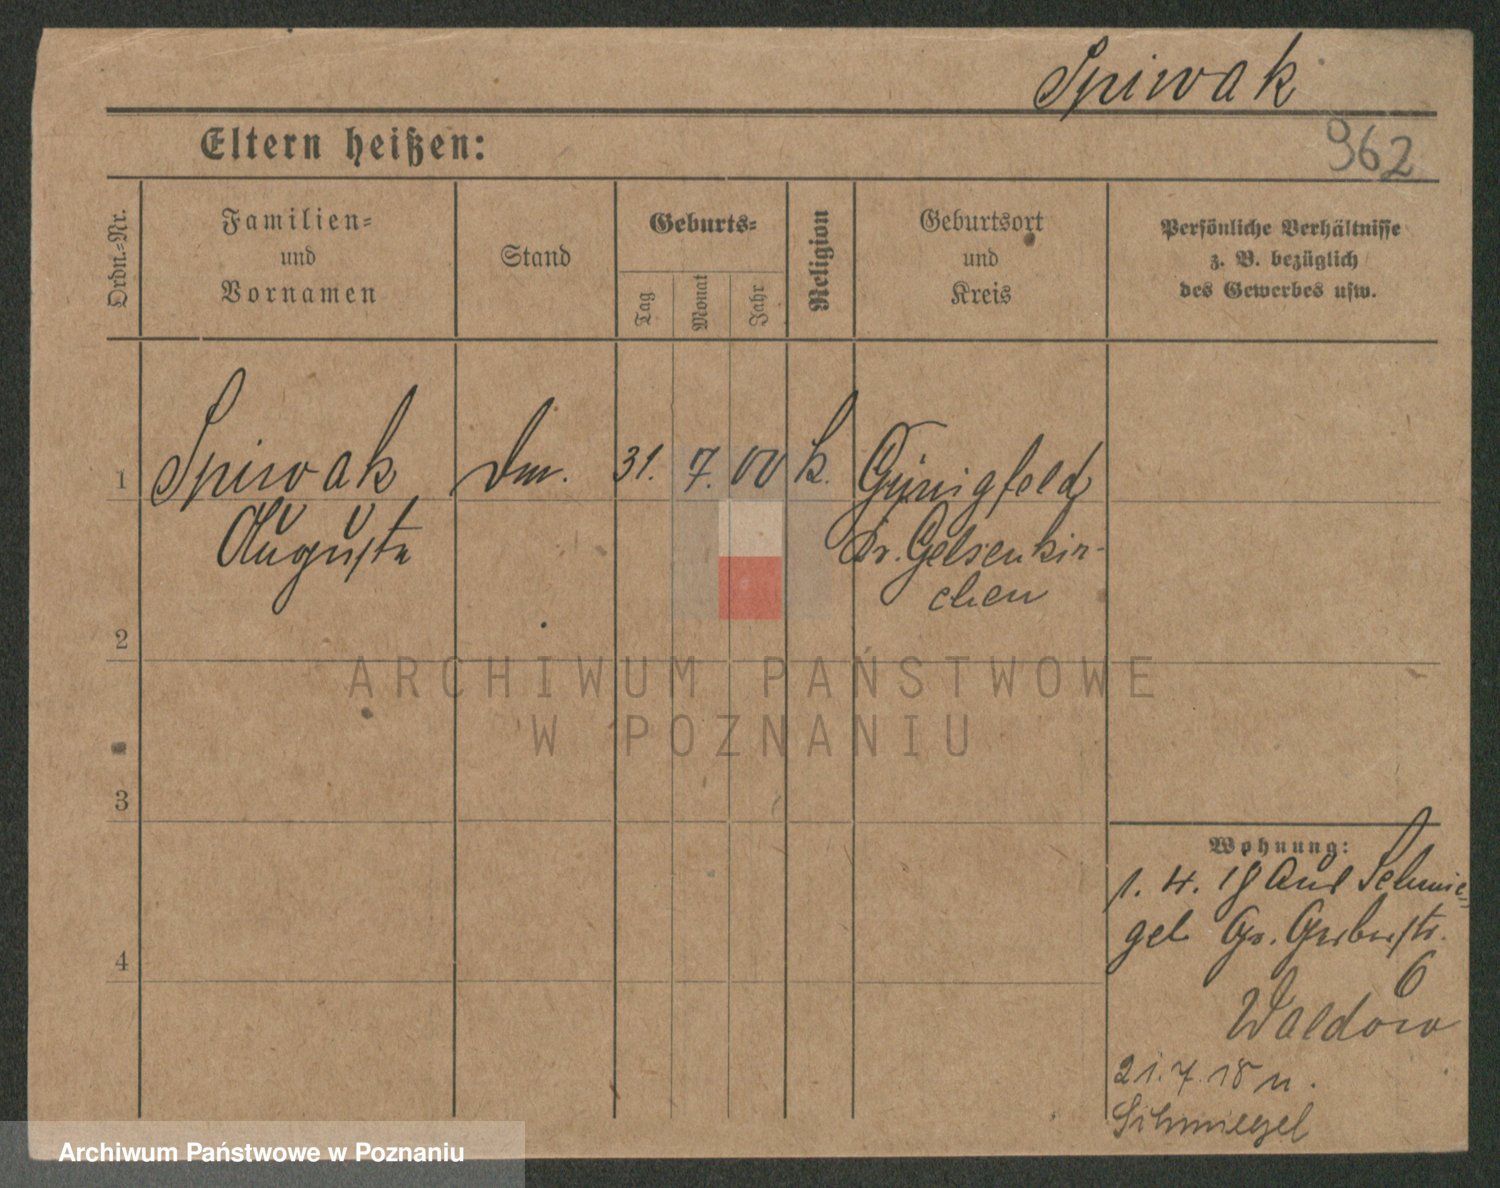 Spiwak
962
Eltern heißen:
Ordn.-Nr.
Familien-
und
Vornamen
Stand
Geburts-
Tag
Monat
Jahr
Religion
Geburtsort
und
Kreis
Persönliche Verhältnisse
z. B. bezüglich
des Gewerbes usw.
1 Spiwak 31. 7. 00 k.
Auguste
Kr. Gelsenkir-
chen
2
3
4
Wohnung:
1. 4. 18 aus Schmie-
gel Gr. Gerberstr.
6
Waldow
21. 7. 18 n.
Schmiegel
ARCHIWUM PAŃSTWOWE
W POZNANIU
Archiwum Państwowe w Poznaniu